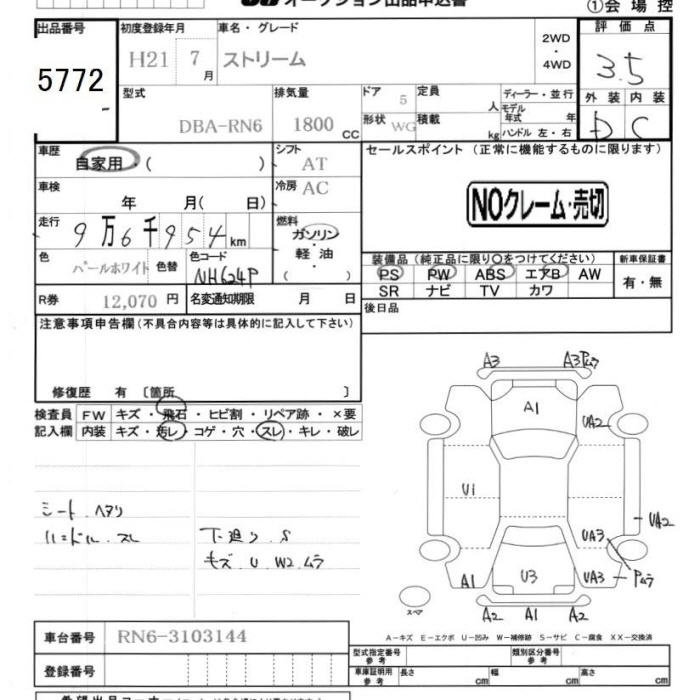 オークション出品申込書
①会場控
出品番号 初度登録年月 車名・グレード 2WD・4WD 評価点
5772 H21 7月 ストリーム 3.5
型式 排気量 ドア 5 定員 人 ディーラー・並行 外装 内装
DBA-RN6 1800 CC 形状 WG 積載 kg モデル年式 年 D C
ハンドル 左・右
車歴 自家用・( ) シフト AT セールスポイント (正常に機能するものに限ります)
車検 年 月( 日) 冷房 AC NOクレーム・売切
走行 9万6千954km 燃料 ガソリン・軽油・( )
色 パールホワイト 色替 色コード NH624P
装備品(純正品に限り○をつけてください) 新車保証書
PS PW ABS エアB AW 有・無
SR ナビ TV カワ
R券 12,070円 名変通知期限 月 日 後日品
注意事項申告欄(不具合内容等は具体的に記入して下さい)
修復歴 有 〔箇所 〕
検査員 FW キズ・飛石・ヒビ割・リペア跡・×要
記入欄 内装 キズ・汚レ・コゲ・穴・スレ・キレ・破レ
シート.ヘタリ
ハンドル.スレ
下廻り.S
キズ.U.W2.ムラ
A3 A3 Pムラ
A1
UA2
U1
UA2
UA3
A1 U3 UA3 Pムラ
A2 A1 A2
スペア
A-キズ E-エクボ U-凹み W-補修跡 S-サビ C-腐食 XX-交換済
車台番号 RN6-3103144
型式指定番号 参考 類別区分番号 参考
登録番号
車庫証明用 参考 長さ cm 幅 cm 高さ cm